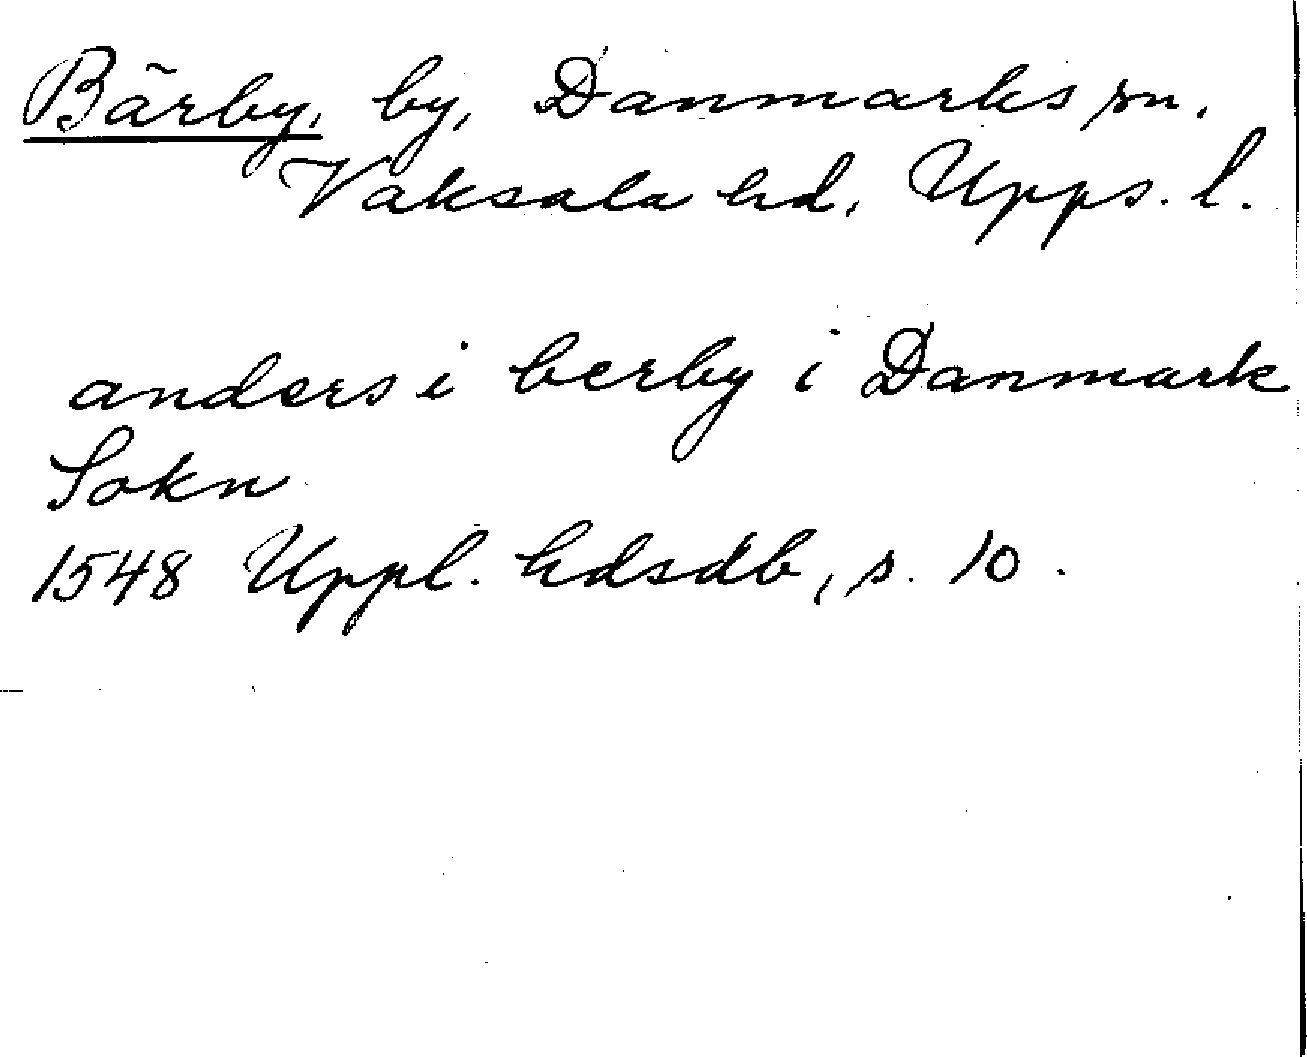 Bärby, by, Danmarks sn.
Vaksala hd, Upps. l.
anders i berby i Danmark
Sokn
1548 Uppl. hdsdb, s. 10.